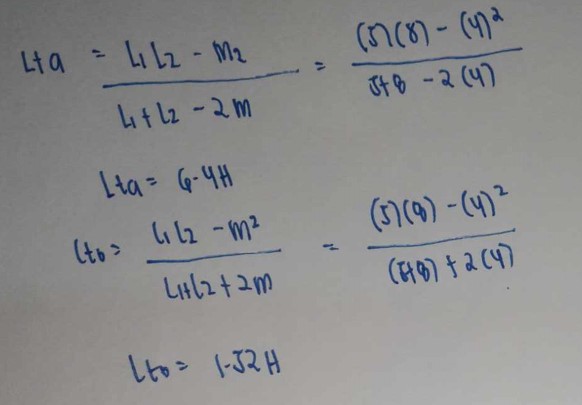 Lta = L1L2 - m2 / L1+L2 - 2m = (5)(8) - (4)² / 5+8 - 2(4)
Lta = 6.4H
Ltb = L1L2 - m² / L1+L2 + 2m = (5)(8) - (4)² / (5+8) + 2(4)
Ltb = 1.52H